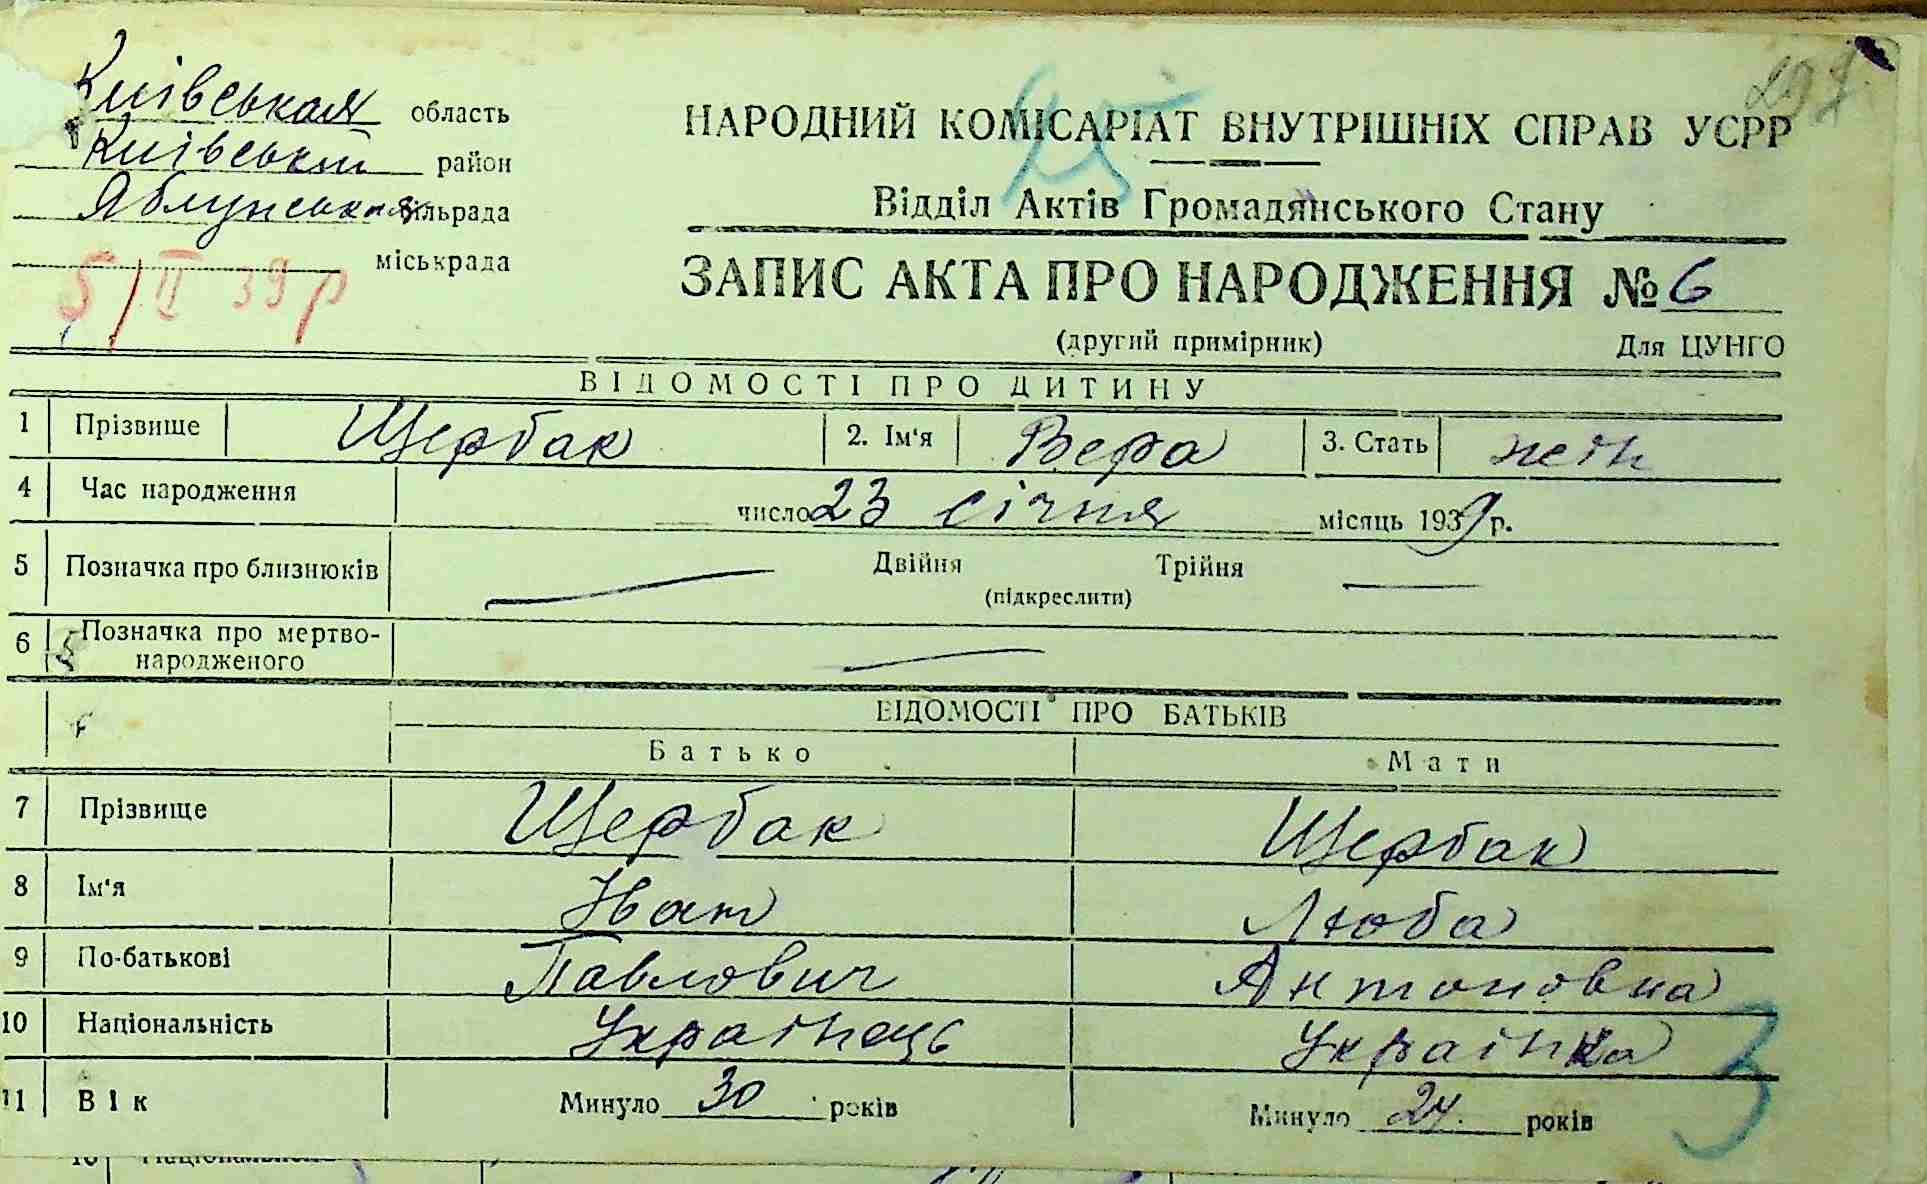 Київськая область
Київський район
Яблунськая сільрада
міськрада
5/II 39 р
НАРОДНИЙ КОМІСАРІАТ ВНУТРІШНІХ СПРАВ УСРР
Відділ Актів Громадянського Стану
ЗАПИС АКТА ПРО НАРОДЖЕННЯ № 6
(другий примірник) Для ЦУНГО
ВІДОМОСТІ ПРО ДИТИНУ
1 Прізвище Щербак 2. Ім'я Вера 3. Стать жін
4 Час народження число 23 січня місяць 1939 р.
5 Позначка про близнюків Двійня Трійня
(підкреслити)
6 Позначка про мертво-
народженого
ВІДОМОСТІ ПРО БАТЬКІВ
Батько Мати
7 Прізвище Щербак Щербак
8 Ім'я Іван Люба
9 По-батькові Павлович Антоновна
10 Національність Українець Українка
11 Вік Минуло 30 років Минуло 24 років
3